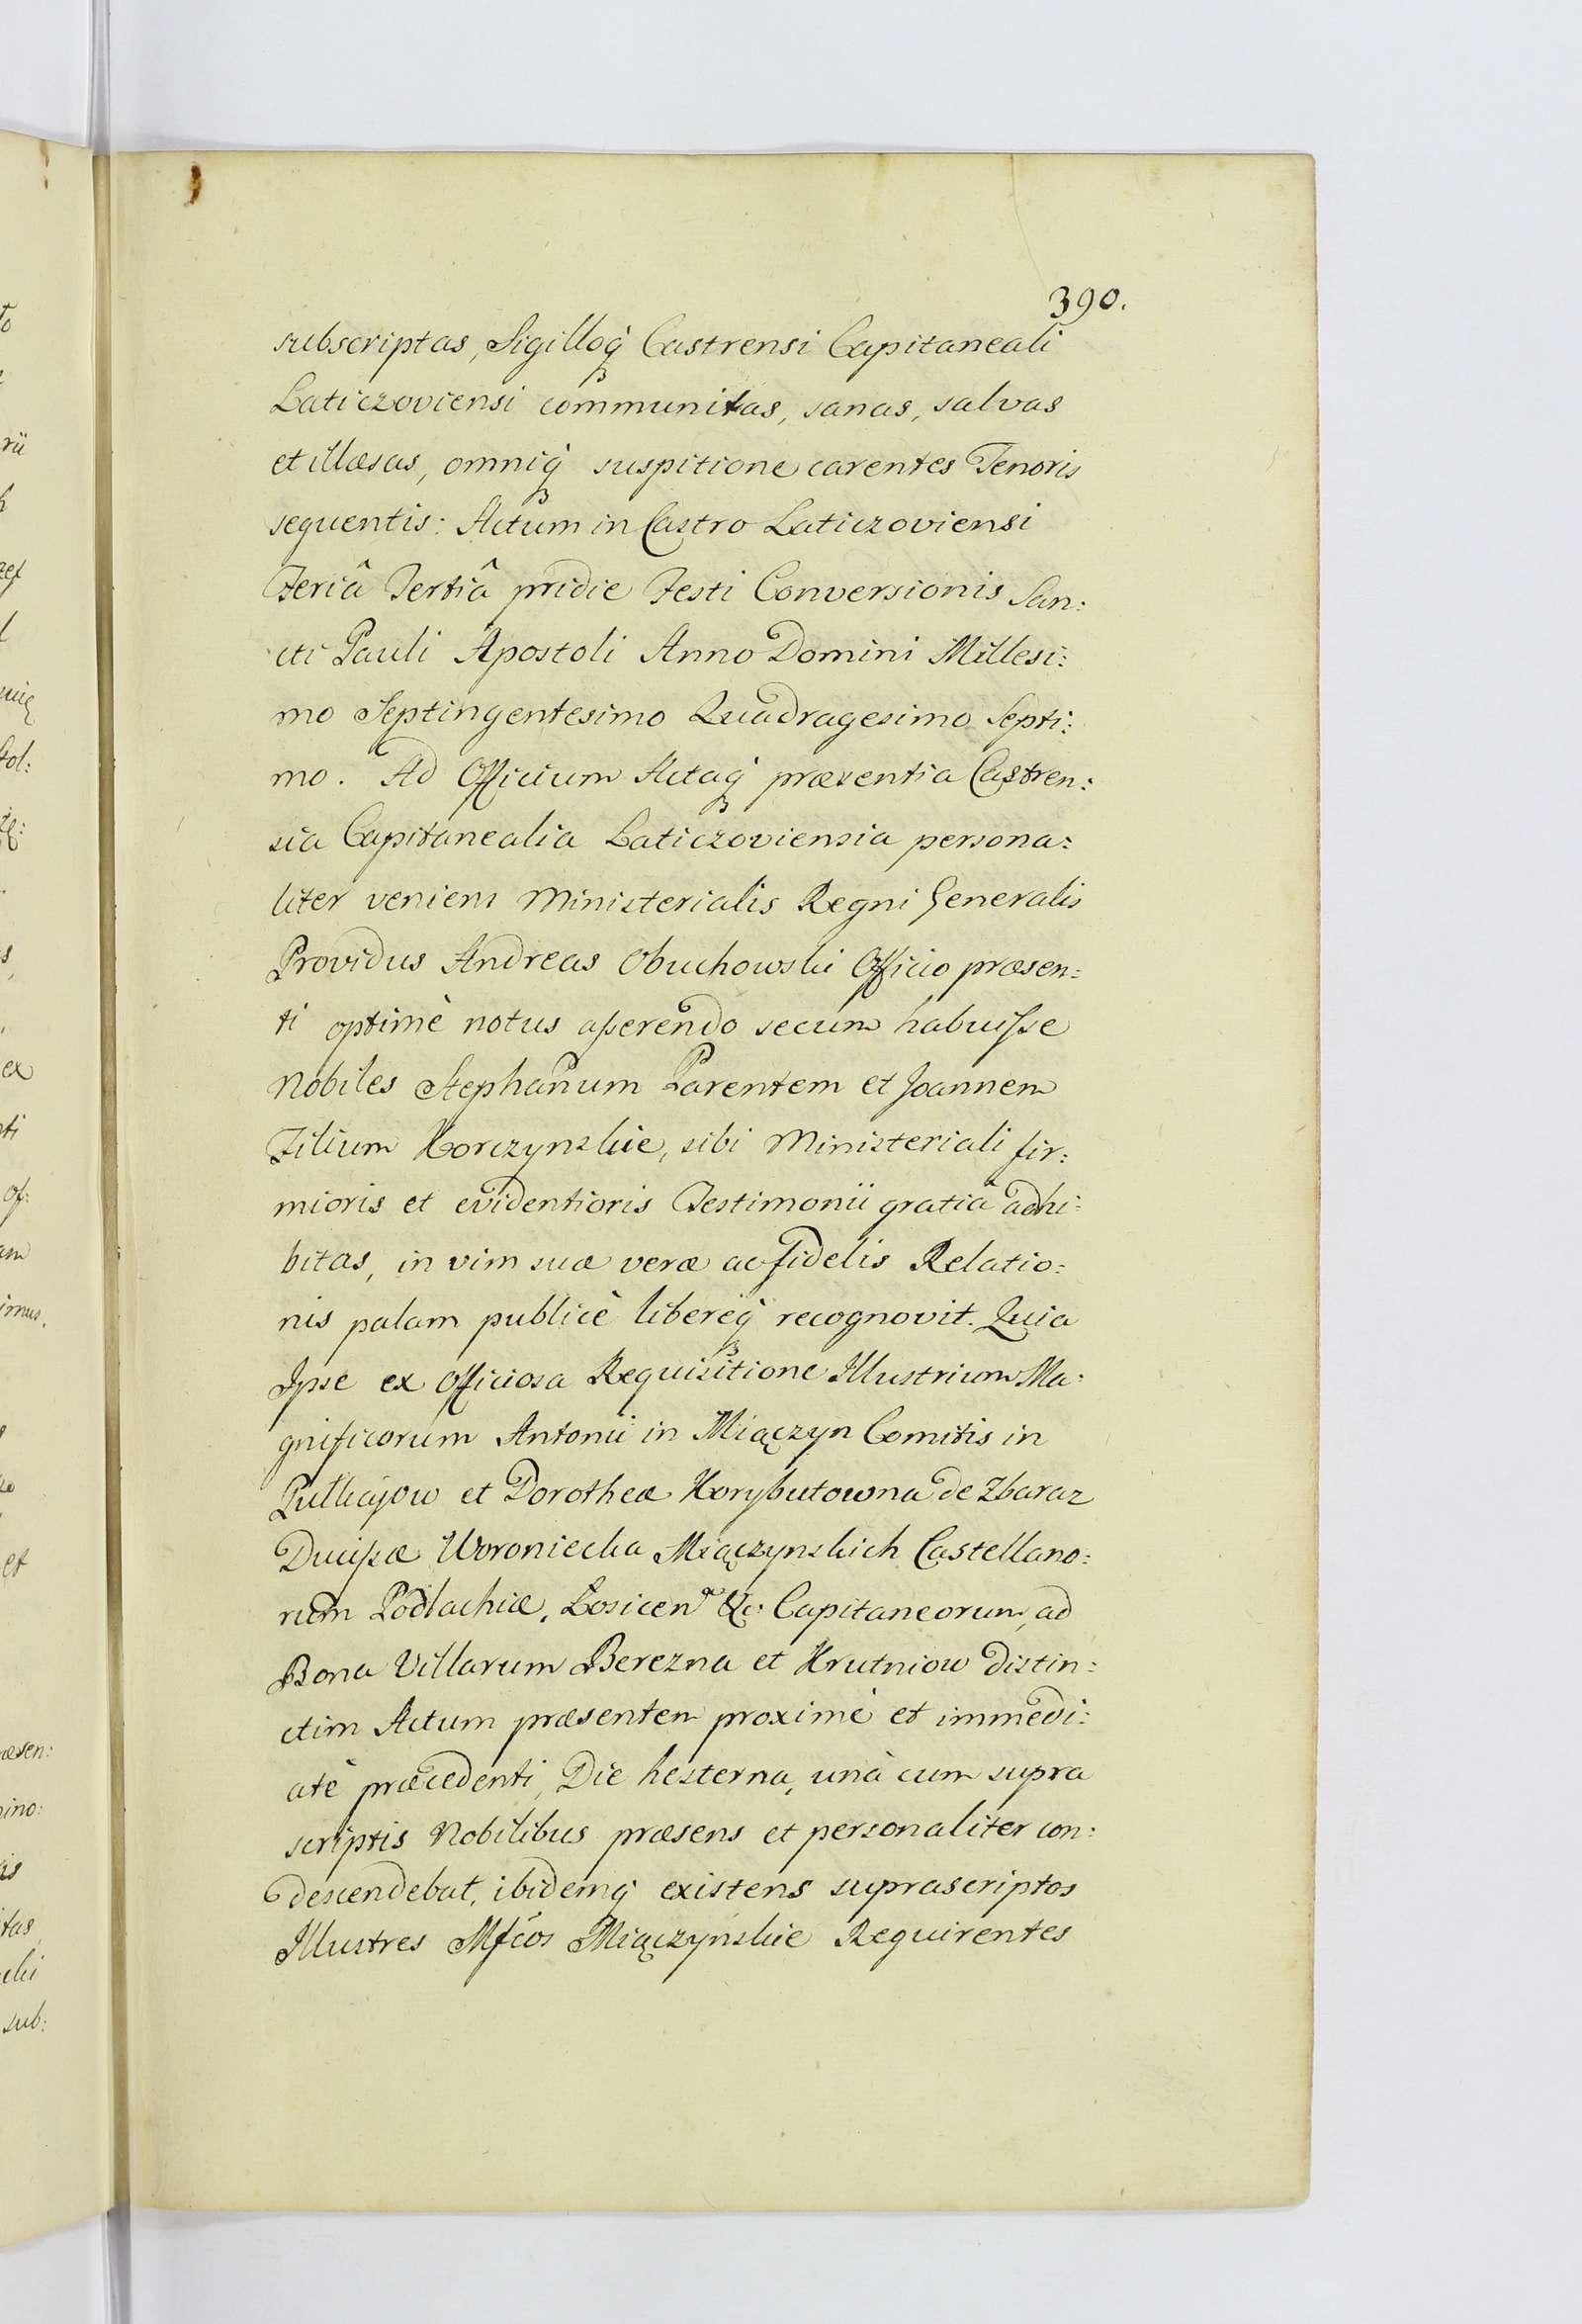 390.
subscriptas, Sigilloq́ Castrensi Capitaneali
Laticzoviensi communitas, sanas, salvas
et illæsas, omniq́ suspitione carentes Tenoris
sequentis: Actum in Castro Laticzoviensi
Feriâ Tertiâ pridie Festi Conversionis San:
cti Pauli Apostoli Anno Domini Millesi:
mo Septingentesimo Quadragesimo Septi:
mo. Ad Officium Actaq́ præsentia Castren:
sia Capitanealia Laticzoviensia persona:
liter veniens Ministerialis Regni Generalis
Providus Andreas Obuchowski Officio præsen:
ti optimè notus asserendo secum habuisse
Nobiles Stephanum Parentem et Joannem
Filium Korczynskie, sibi Ministeriali fir:
mioris et evidentioris Testimonii gratiâ adhi:
bitas, in vim suæ veræ ac fidelis Relatio:
nis palam publicè libereq́ recognovit. Quia
Ipse ex Officiosa Requisitione Illustrium Ma:
gnificorum Antonii in Miączyn Comitis in
Pulhajow et Dorotheæ Korybutowna de Zbaraz
Ducissæ Woroniecka Miączynskich Castellano:
rum Podlachiæ, Łosicen &c: Capitaneorum, ad
Bona Villarum Berezna et Krutniow distin:
ctim Actum præsentem proximè et immedi:
atè præcedenti, Die hesterna, unà cum supra
scriptis Nobilibus præsens et personaliter con:
descendebat, ibidemq́ existens suprascriptos
Illustres Mfcos Miączynskie Requirentes
to
rii
ex
ti
of:
am
imus.
et
æsen:
mino:
is
tas
cki
sub: